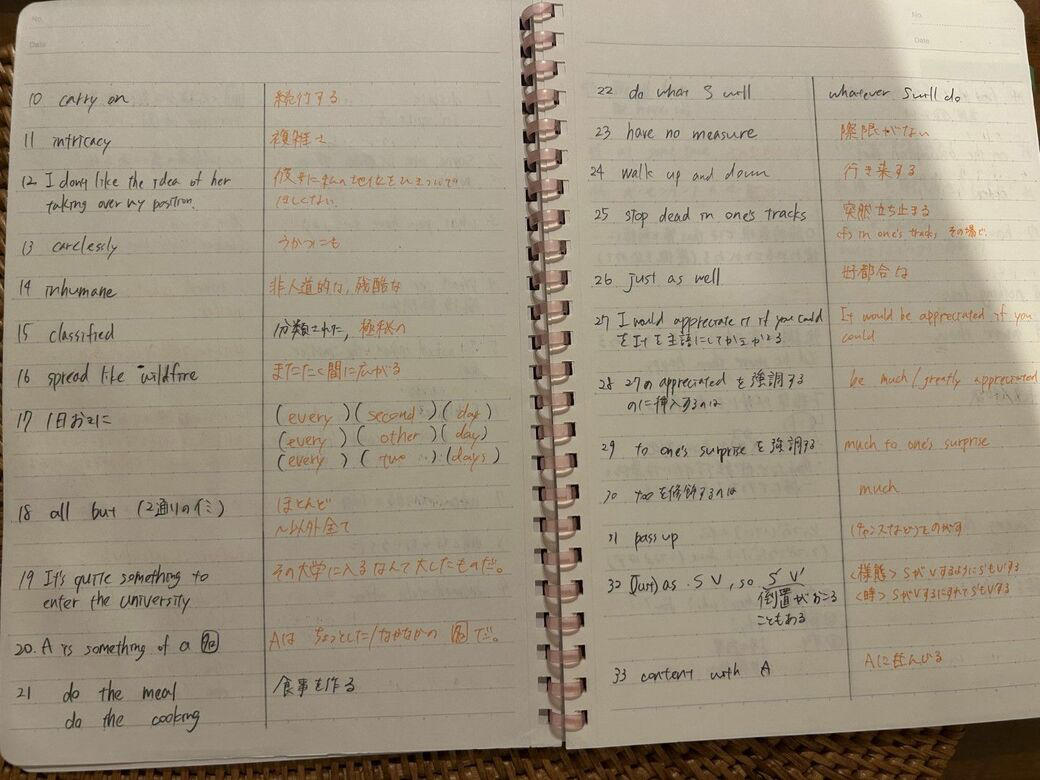 No.
Date
10 carry on 続行する
11 intricacy 複雑さ
12 I don't like the idea of her 彼女に私の地位をひきついで
taking over my position. ほしくない
13 carelessly うかつにも
14 inhumane 非人道的な, 残酷な
15 classified 分類された, 極秘の
16 spread like wildfire またたく間に広がる
17 1日おきに (every) (second) (day)
(every) (other) (day)
(every) (two) (days)
18 all but (2通りの ) ほとんど
~以外全て
19 It's quite something to その大学に入るなんて大したものだ。
enter the university
20. A is something of a 名 Aは ちょっとした/なかなかの 名 だ。
21 do the meal 食事を作る
do the cooking
No.
Date
22 do what S will whatever S will do
23 have no measure 際限がない
24 walk up and down 行き来する
25 stop dead in one's tracks 突然立ち止まる
cf) in one's tracks その場で
26 just as well 好都合な
27 I would appreciate it if you could It would be appreciated if you
をItを主語にしてかきかえる could
28 27の appreciated を強調する be much/greatly appreciated
のに挿入するのは
29 to one's surprise を強調する much to one's surprise
30 tooを修飾するのは much
31 pass up (チャンスなど)をのがす
32 (Just) as S V, so S' V' <様態> SがVするようにS'もV'する
倒置がおこる <時> SがVするにすれてS'もV'する
こともある
33 content with A Aに甘んじる